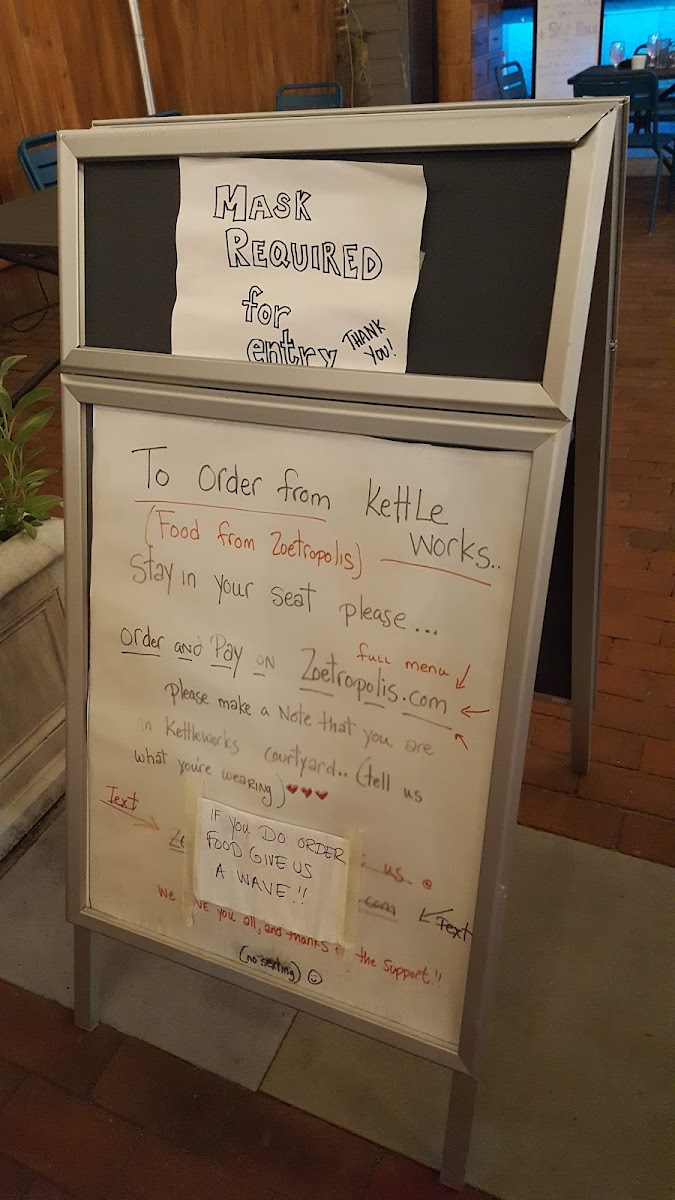 MASK
REQUIRED
for
entry
THANK
YOU!
To order from Kettle
works..
(Food from Zoetropolis)
Stay in your seat please...
order and Pay on Zoetropolis.com
full menu
please make a Note that you are
in Kettleworks courtyard.. (tell us
what you're wearing)♥♥♥
Text
IF YOU DO ORDER
FOOD GIVE US
A WAVE!!
us @
.com
Text
We you all, and thanks the support!!
(no sexting) ☺